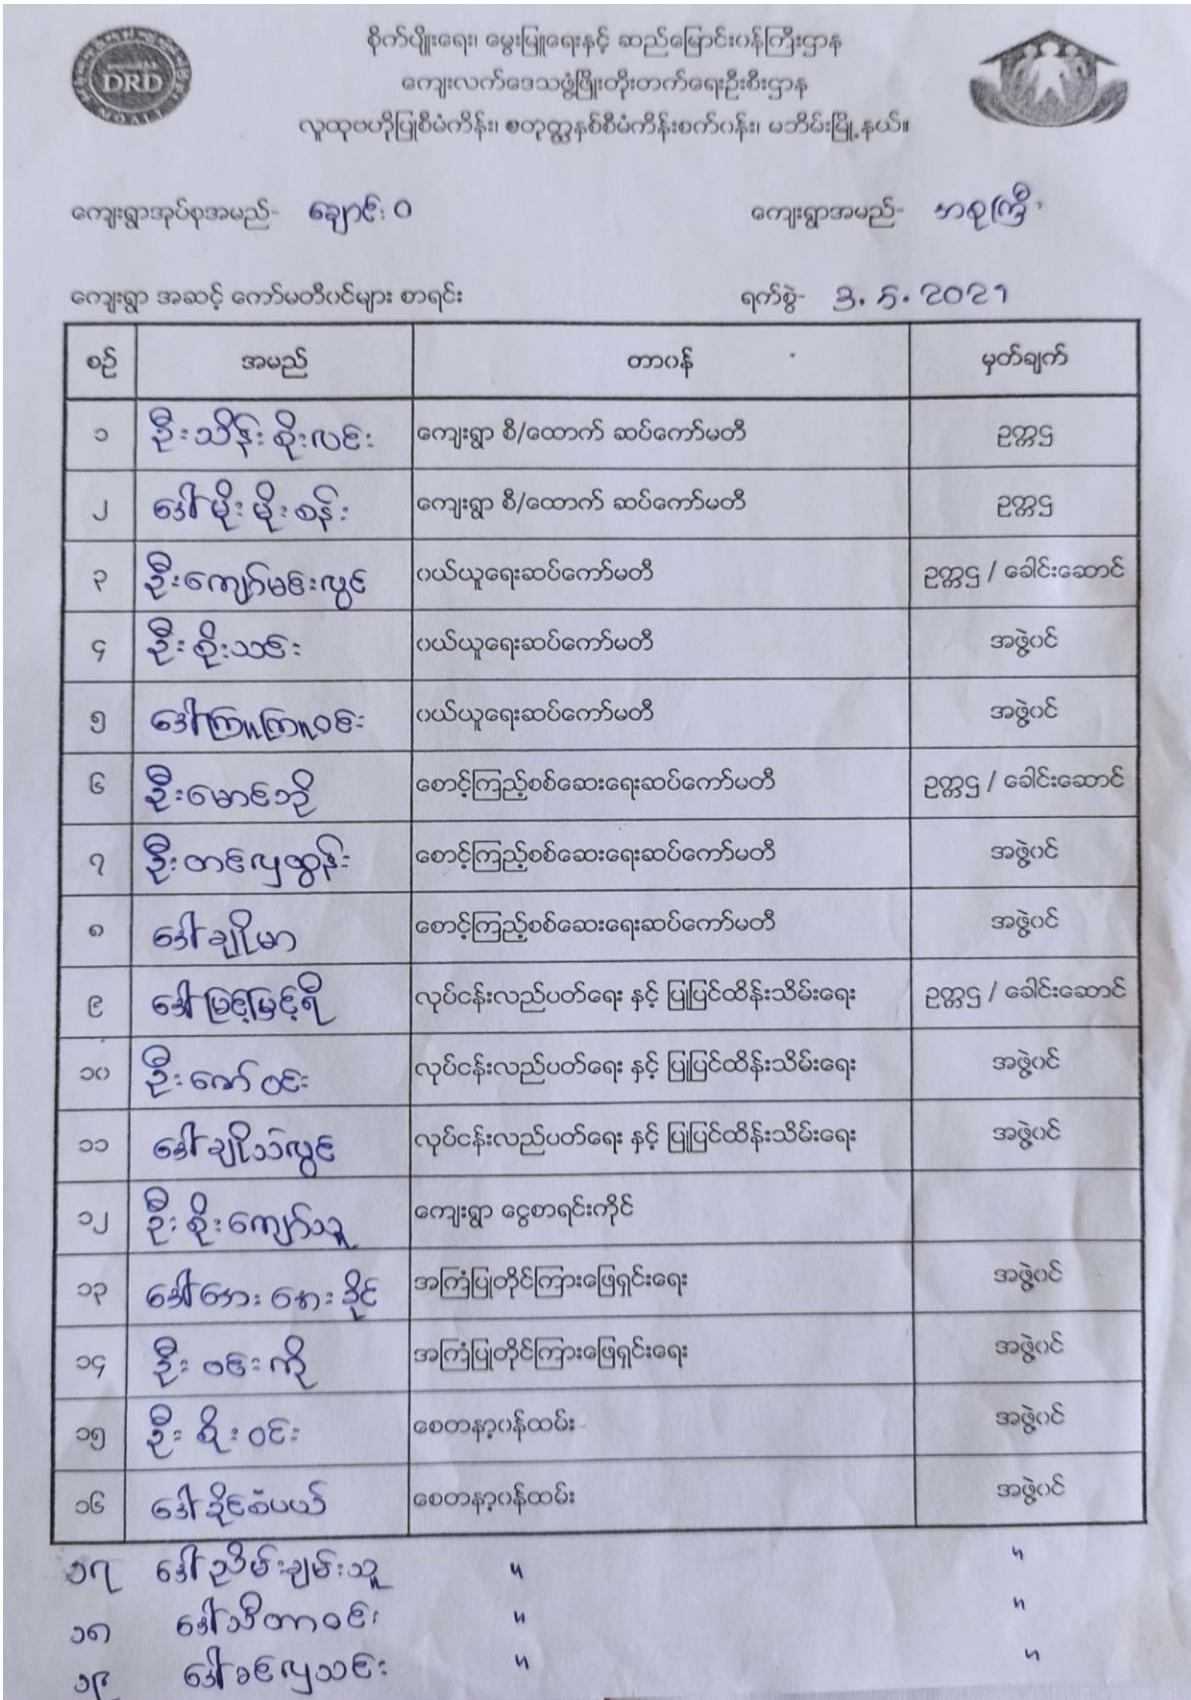 စိုက်ပျိုးရေး၊ မွေးမြူရေးနှင့် ဆည်မြောင်းဝန်ကြီးဌာန
DRD
ကျေးလက်ဒေသဖွံ့ဖြိုးတိုးတက်ရေးဦးစီးဌာန
လူထုဗဟိုပြုစီမံကိန်း၊ စတုတ္ထနှစ်စီမံကိန်းစက်ဝန်း၊ မဘိမ်းမြို့နယ်။
ကျေးရွာအုပ်စုအမည်- ချောင်းဝ ကျေးရွာအမည်- ဘစုကြီး
ကျေးရွာ အဆင့် ကော်မတီဝင်များ စာရင်း ရက်စွဲ- 3.5.2021
စဉ် အမည် တာဝန် မှတ်ချက်
၁ ဦးသိန်းစိုးလင်း ကျေးရွာ စီ/ထောက် ဆပ်ကော်မတီ ဥက္ကဌ
၂ ဒေါ်မိုးမိုးစန်း ကျေးရွာ စီ/ထောက် ဆပ်ကော်မတီ ဥက္ကဌ
၃ ဦးကျော်မင်းလွင် ဝယ်ယူရေးဆပ်ကော်မတီ ဥက္ကဌ / ခေါင်းဆောင်
၄ ဦးစိုးသင်း ဝယ်ယူရေးဆပ်ကော်မတီ အဖွဲ့ဝင်
၅ ဒေါ်ကြူကြူဝင်း ဝယ်ယူရေးဆပ်ကော်မတီ အဖွဲ့ဝင်
၆ ဦးမောင်ဘို စောင့်ကြည့်စစ်ဆေးရေးဆပ်ကော်မတီ ဥက္ကဌ / ခေါင်းဆောင်
၇ ဦးတင်လှထွန်း စောင့်ကြည့်စစ်ဆေးရေးဆပ်ကော်မတီ အဖွဲ့ဝင်
၈ ဒေါ်ချိုမာ စောင့်ကြည့်စစ်ဆေးရေးဆပ်ကော်မတီ အဖွဲ့ဝင်
၉ ဒေါ်မြင့်မြင့်ရီ လုပ်ငန်းလည်ပတ်ရေး နှင့် ပြုပြင်ထိန်းသိမ်းရေး ဥက္ကဌ / ခေါင်းဆောင်
၁၀ ဦးဇော်ဝင်း လုပ်ငန်းလည်ပတ်ရေး နှင့် ပြုပြင်ထိန်းသိမ်းရေး အဖွဲ့ဝင်
၁၁ ဒေါ်ချိုသဲလွင် လုပ်ငန်းလည်ပတ်ရေး နှင့် ပြုပြင်ထိန်းသိမ်းရေး အဖွဲ့ဝင်
၁၂ ဦးစိုးကျော်သူ ကျေးရွာ ငွေစာရင်းကိုင်
၁၃ ဒေါ်အေးအေးခိုင် အကြံပြုတိုင်ကြားဖြေရှင်းရေး အဖွဲ့ဝင်
၁၄ ဦးဝင်းကို အကြံပြုတိုင်ကြားဖြေရှင်းရေး အဖွဲ့ဝင်
၁၅ ဦးစိုးဝင်း စေတနာ့ဝန်ထမ်း အဖွဲ့ဝင်
၁၆ ဒေါ်ခိုင်စံပယ် စေတနာ့ဝန်ထမ်း အဖွဲ့ဝင်
၁၇ ဒေါ်ညိမ်းချမ်းသူ " "
၁၈ ဒေါ်သီတာဝင်း " "
၁၉ ဒေါ်ခင်လှသင်း " "